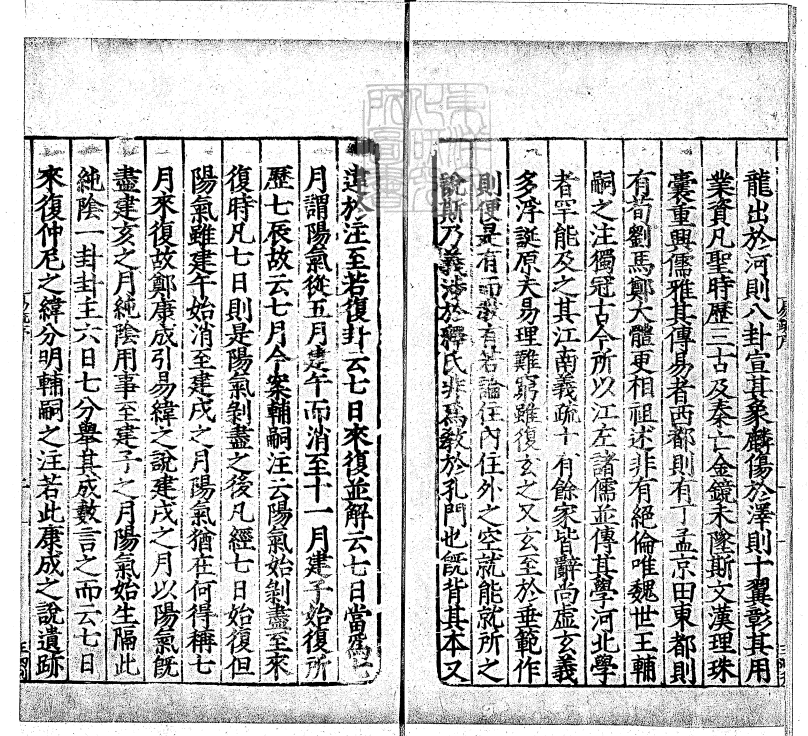 龍出於河則八卦宣其象麟傷於澤則十翼彰其用
業資凡聖時歷三古及秦亡金鏡未墜斯文漢理珠
囊重興儒雅其傳易者西都則有丁孟京田東都則
有荀劉馬鄭大體更相祖述非有絕倫唯魏世王輔
嗣之注獨冠古今所以江左諸儒並傳其學河北學
者罕能及之其江南義疏十有餘家皆辭尚虛玄義
多浮誕原夫易理難窮雖復玄之又玄至於垂範作
則便是有而敎有若論住內住外之空就能就所之
說斯乃義涉於釋氏非爲敎於孔門也旣背其本又
違於注至若復卦云七日來復並解云七日當爲七
月謂陽氣從五月建午而消至十一月建子始復所
歷七辰故云七月今案輔嗣注云陽氣始剝盡至來
復時凡七日則是陽氣剝盡之後凡經七日始復但
陽氣雖建午始消至建戌之月陽氣猶在何得稱七
月來復故鄭康成引易緯之說建戌之月以陽氣旣
盡建亥之月純陰用事至建子之月陽氣始生隔此
純陰一卦卦主六日七分舉其成數言之而云七日
來復仲尼之緯分明輔嗣之注若此康成之說遺跡